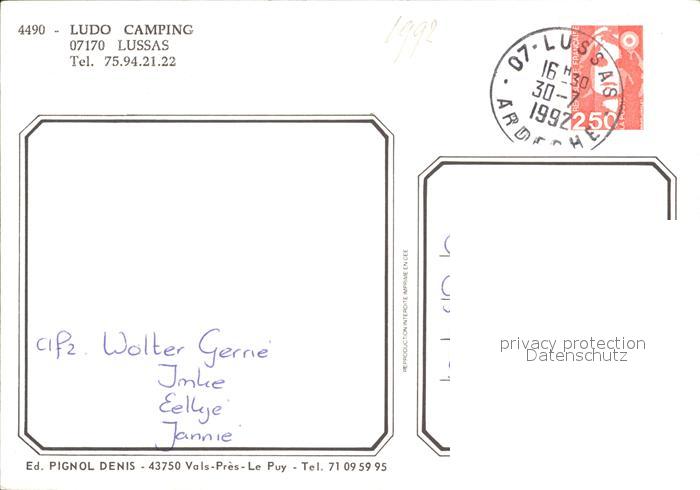 4490 - LUDO CAMPING
07170 LUSSAS
Tel. 75.94.21.22
1992
07-LUSSAS
16 H 30
30-7
1992
ARDECHE
2,50
REPRODUCTION INTERDITE IMPRIME EN CEE
privacy protection
Datenschutz
Wolter Gerrie
Imke
Eelkje
Jannie
Ed. PIGNOL DENIS - 43750 Vals-Près-Le Puy - Tel. 71 09 59 95